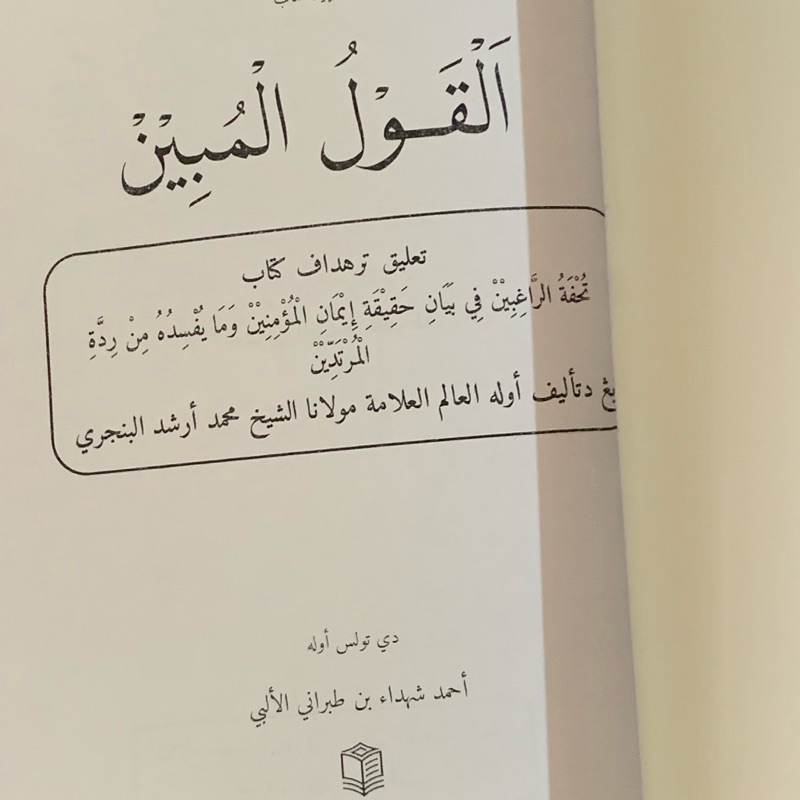 اَلْقَوْلُ الْمُبِيْنْ
تعليق ترهداف كتاب
تُحْفَةُ الرَّاغِبِيْنْ فِي بَيَانِ حَقِيْقَةِ إِيْمَانِ الْمُؤْمِنِيْنْ وَمَا يُفْسِدُهُ مِنْ رِدَّةِ
الْمُرْتَدِّيْنْ
يڠ دتأليف أوله العالم العلامة مولانا الشيخ محمد أرشد البنجري
دي تولس أوله
أحمد شهداء بن طبراني الألبي